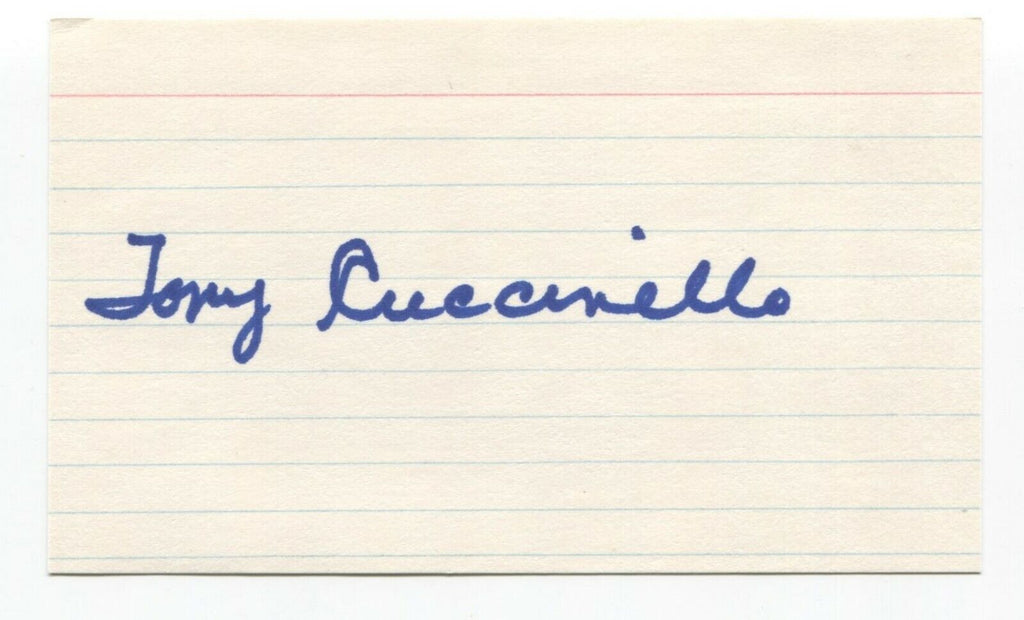 Tony Cuccinello